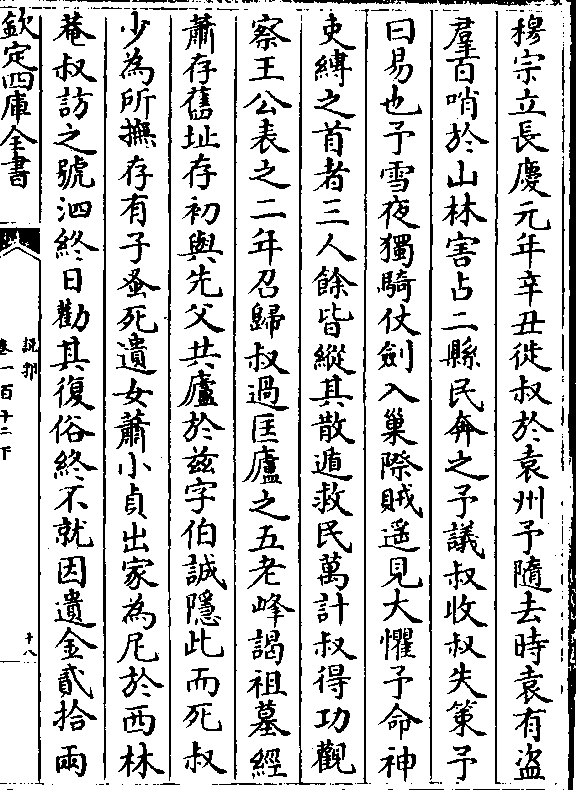 穆宗立長慶元年辛丑徙叔於袁州予隨去時袁有盜
羣百哨於山林害占二縣民奔之予議叔收叔失策予
曰易也予雪夜獨騎仗劍入巢際賊遥見大懼予命神
吏縛之首者三人餘皆縱其散遁救民萬計叔得功觀
察王公表之二年召歸叔過匡廬之五老峰謁祖墓經
蕭存舊址存初與先父共廬於兹字伯誠隱此而死叔
少為所撫存有子蚤死遺女蕭小貞出家為尼於西林
菴叔訪之號泗終日勸其復俗終不就因遺金貳拾兩
欽定四庫全書
説郛
卷一百十二下
十八